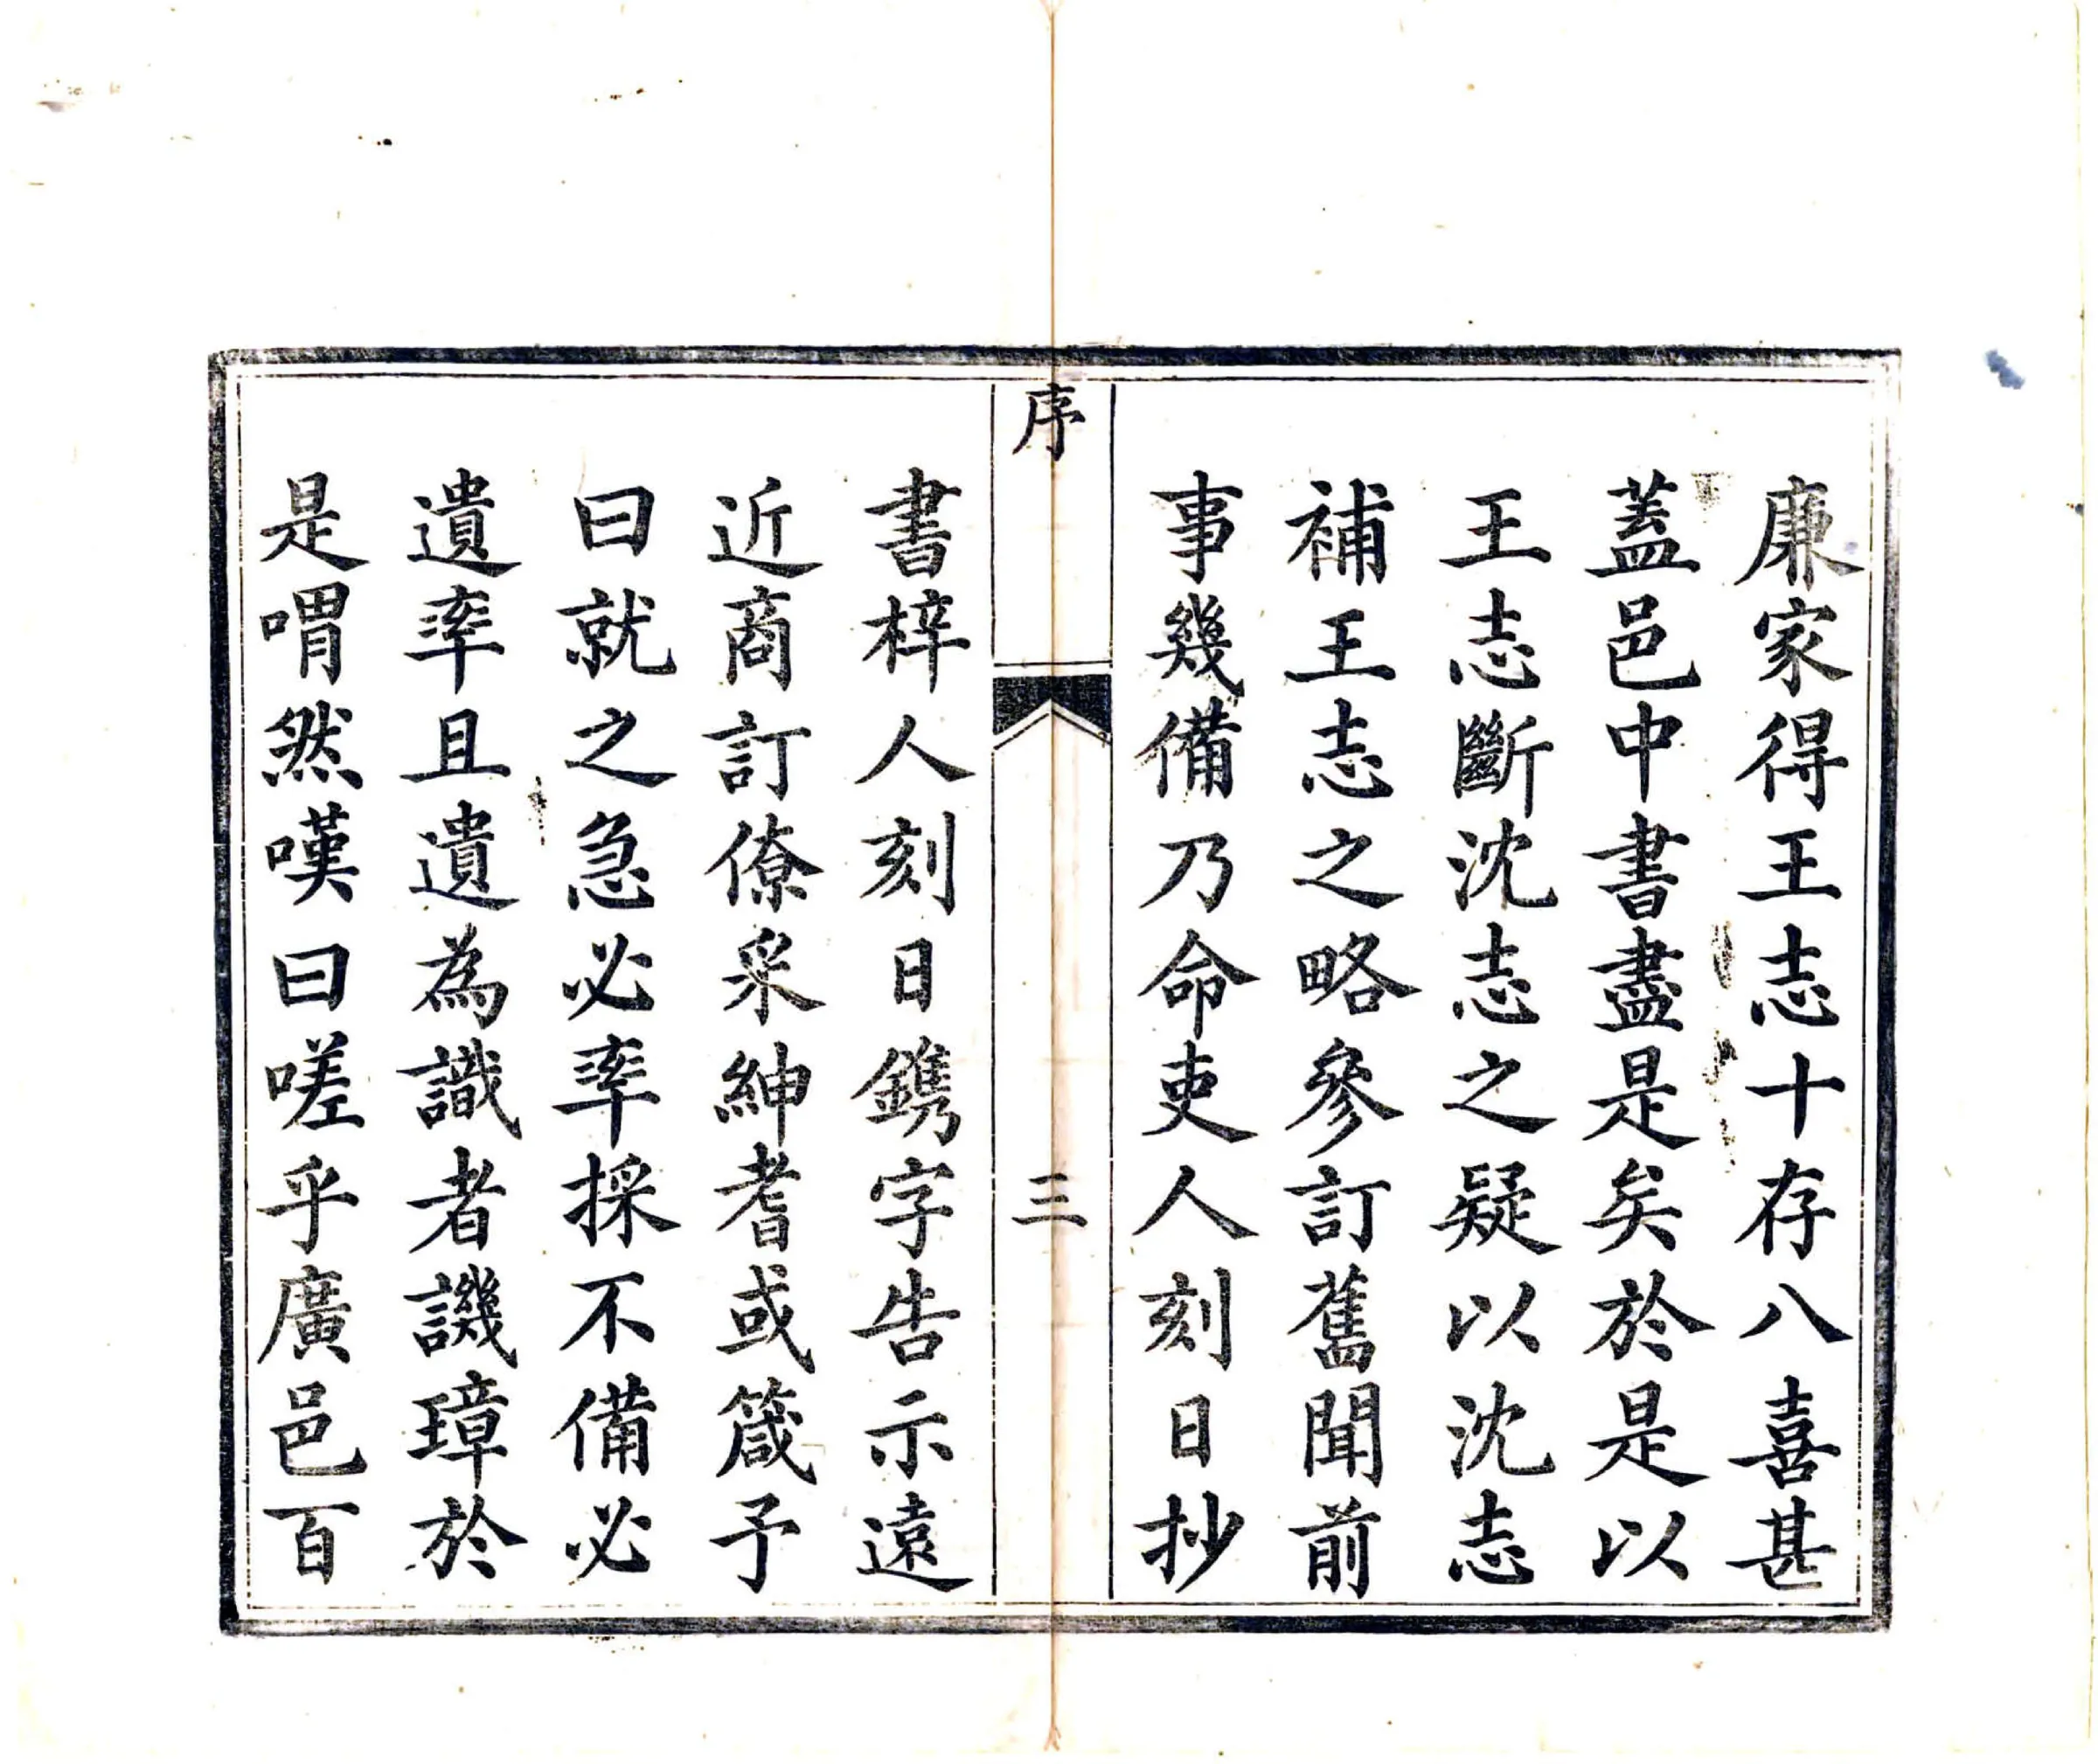 廉家得王志十存八喜甚
蓋邑中書盡是矣於是以
王志斷沈志之疑以沈志
補王志之略參訂舊聞前
事幾備乃命吏人刻日抄
序
三
書梓人刻日鐫字告示遠
近商訂僚寀紳耆或箴予
曰就之急必率採不備必
遺率且遺為識者譏璋於
是喟然嘆曰嗟乎廣邑百